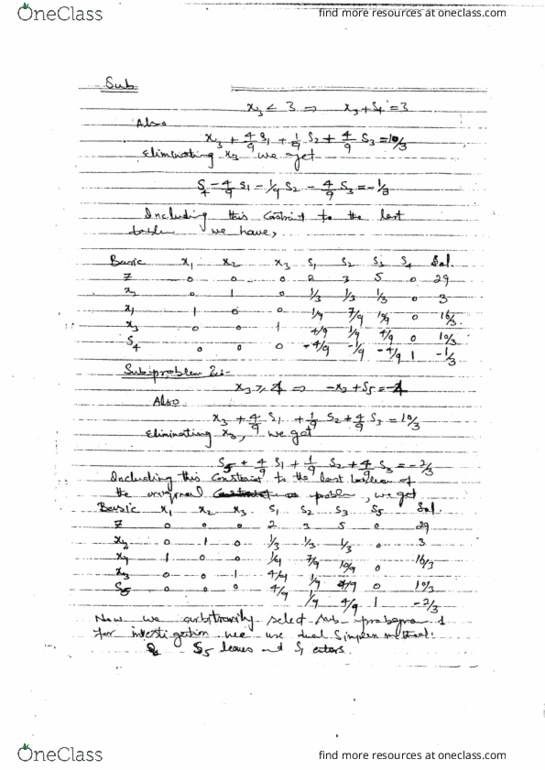 OneClass
find more resources at oneclass.com
Sub
x3 < 3 ⇒ x3 + S4 = 3
Also
x3 + 4/9 S1 + 1/9 S2 + 4/9 S3 = 10/3
Eliminating x3 we get
S4 - 4/9 S1 - 1/9 S2 - 4/9 S3 = -1/3
Including this to the last
we have,
Basic x1 x2 x3 S1 S2 S3 S4 Sol.
Z 0 0 0 2 3 5 0 29
x2 0 1 0 1/3 1/3 1/3 0 3
x1 1 0 0 1/9 7/9 10/9 0 16/3
x3 0 0 1 4/9 1/9 4/9 0 10/3
S4 0 0 0 -4/9 -1/9 -4/9 1 -1/3
Subproblem 2:-
x3 ≥ 4 ⇒ -x3 + S5 = -4
Also
x3 + 4/9 S1 + 1/9 S2 + 4/9 S3 = 10/3
Eliminating x3, we get
S5 + 4/9 S1 + 1/9 S2 + 4/9 S3 = -2/3
Including this to the last of
the original problem, we get
Basic x1 x2 x3 S1 S2 S3 S5 Sol.
Z 0 0 0 2 3 5 0 29
x2 0 1 0 1/3 1/3 1/3 0 3
x1 1 0 0 1/9 7/9 10/9 0 16/3
x3 0 0 1 4/9 1/9 4/9 0 10/3
S5 0 0 0 4/9 1/9 4/9 1 -2/3
Now we arbitrarily select sub
for investigation we use dual simplex method:
S5 leaves and S1 enters.
OneClass
find more resources at oneclass.com